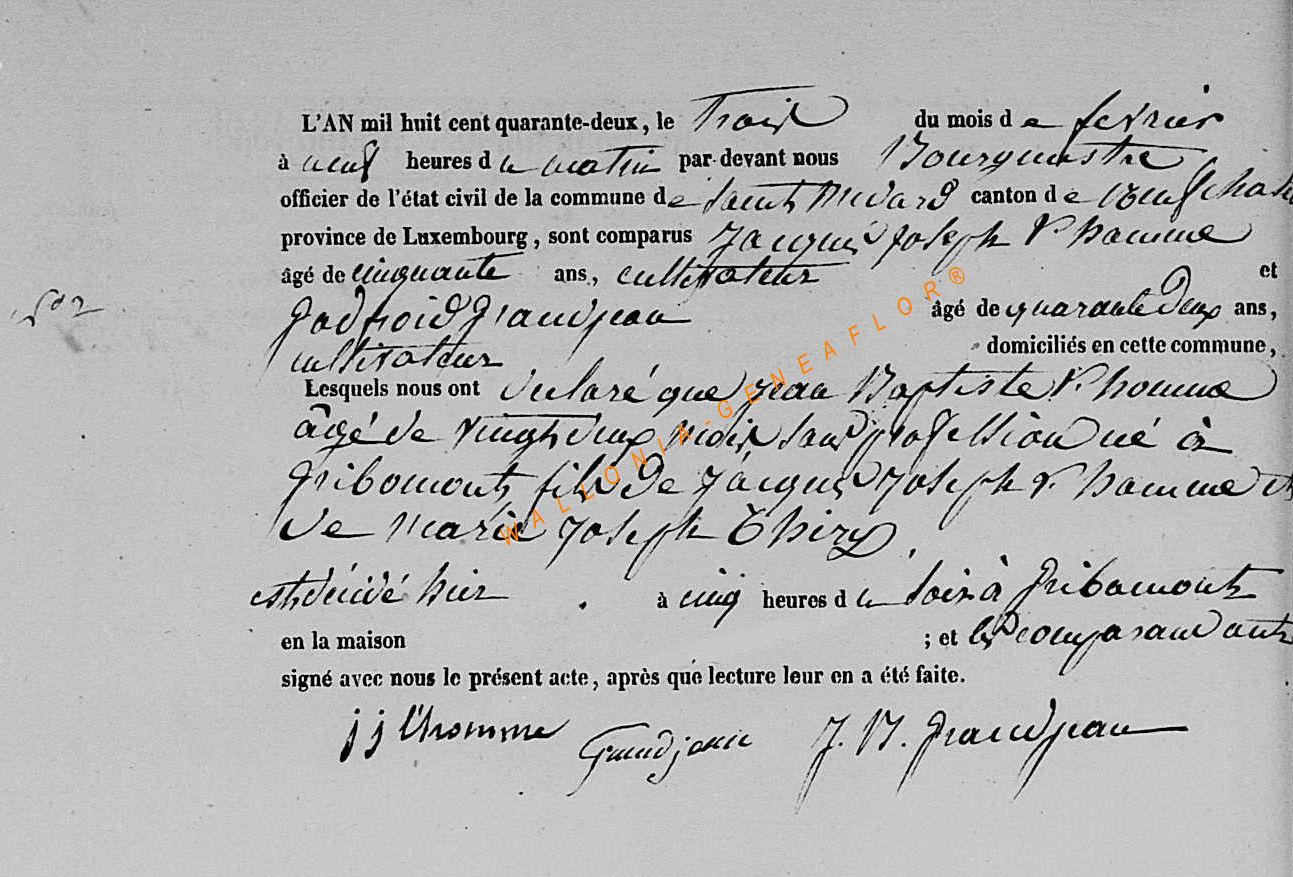 L'AN mil huit cent quarante-deux, le trois du mois de fevrier
à neuf heures du matin par devant nous Bourgmestre
officier de l'état civil de la commune de Saint Medard canton de
province de Luxembourg, sont comparus Jacques Joseph L'homme
âgé de cinquante ans, cultivateur et
Godfroid Grandjean âgé de quarante deux ans,
cultivateur domiciliés en cette commune,
Lesquels nous ont declaré que Jean Baptiste L'homme
âgé de vingt deux mois sans profession né à
Gribomont fils de Jacques Joseph L'homme et
de Marie Joseph Thiry
est décédé hier à cinq heures du soir à Gribomont
en la maison ; et les comparans ont
signé avec nous le présent acte, après que lecture leur en a été faite.
j j l'homme Grandjean J. B. Grandjean
WALLONIA-GENEAFLOR®